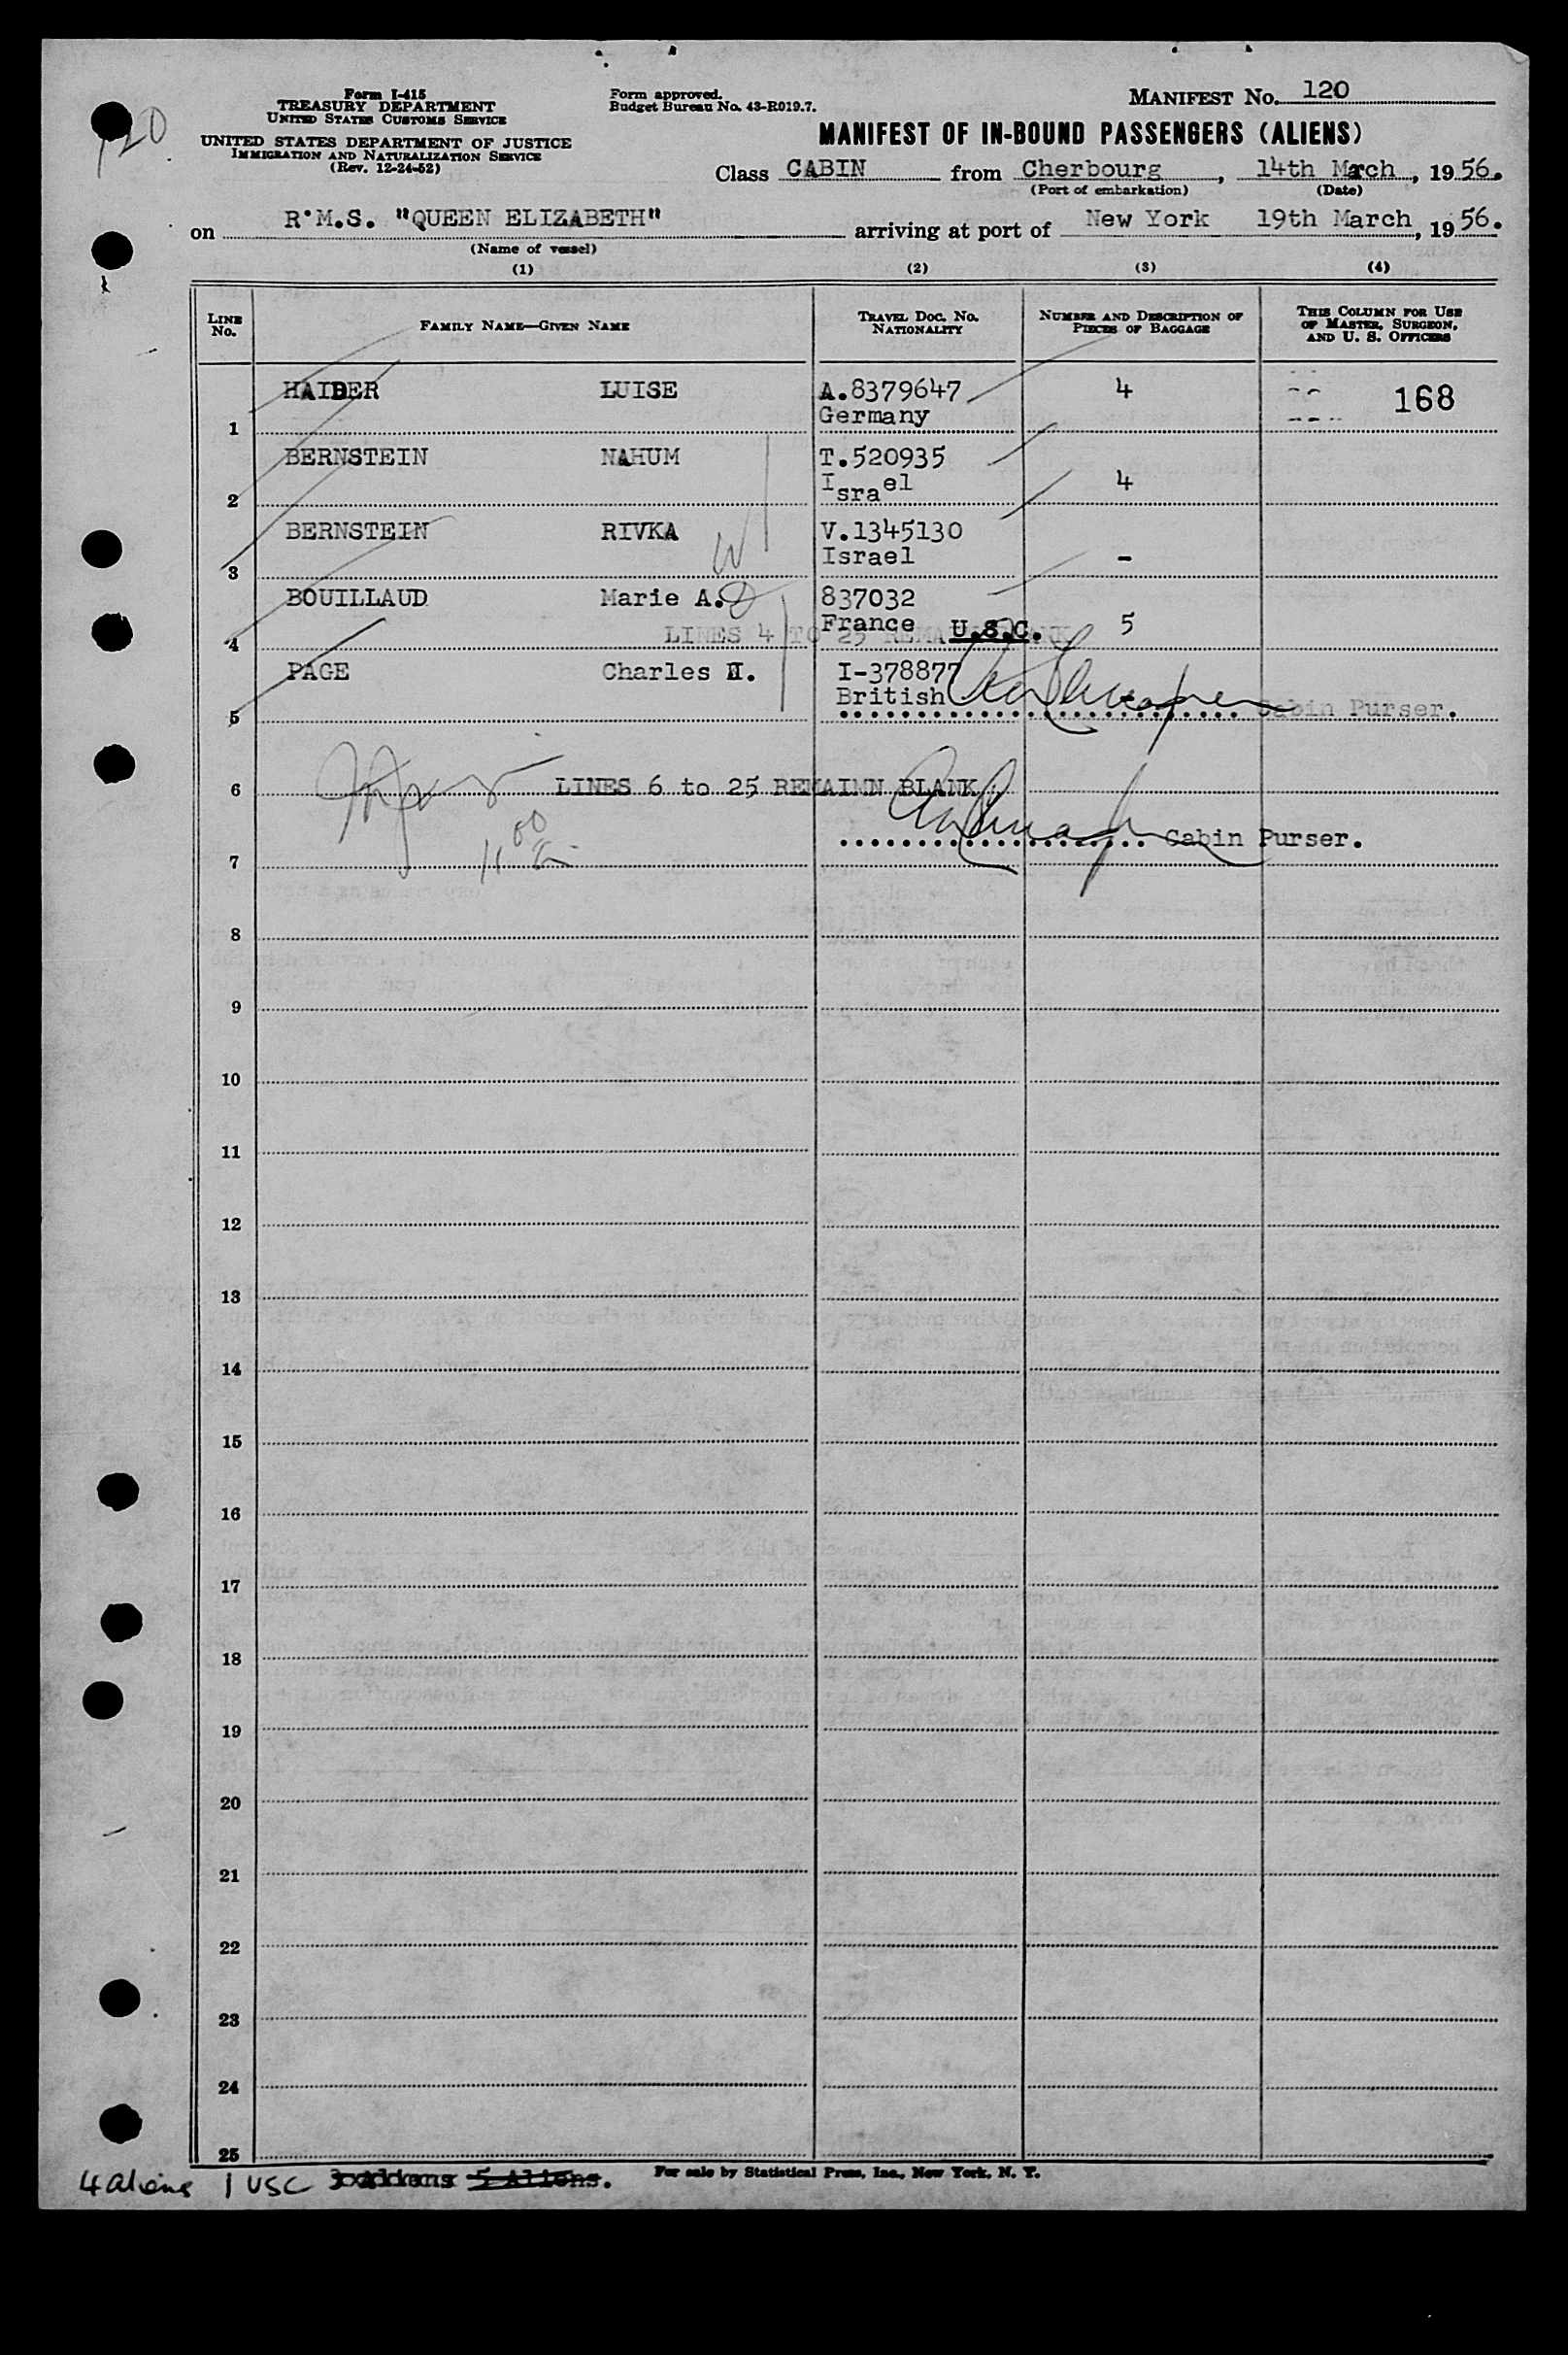 120
Form I-415
TREASURY DEPARTMENT
UNITED STATES CUSTOMS SERVICE
UNITED STATES DEPARTMENT OF JUSTICE
IMMIGRATION AND NATURALIZATION SERVICE
(Rev. 12-24-52)
Form approved.
Budget Bureau No. 43-R019.7.
MANIFEST No. 120
MANIFEST OF IN-BOUND PASSENGERS (ALIENS)
Class CABIN from Cherbourg, 14th March, 1956.
(Port of embarkation) (Date)
on R.M.S. "QUEEN ELIZABETH" arriving at port of New York 19th March, 1956.
(Name of vessel)
(1) (2) (3) (4)
LINE No. FAMILY NAME—GIVEN NAME TRAVEL DOC. NO. NATIONALITY NUMBER AND DESCRIPTION OF PIECES OF BAGGAGE THIS COLUMN FOR USE OF MASTER, SURGEON, AND U. S. OFFICERS
HAIDER LUISE A.8379647 4 168
Germany
1
BERNSTEIN NAHUM T.520935
Israel 4
2
BERNSTEIN RIVKA V.1345130
Israel -
3
BOUILLAUD Marie A. 837032
France U.S.C. 5
LINES 4 TO 25 REMAIN BLANK
4
PAGE Charles H. I-378877
British -
5 Cabin Purser.
6 LINES 6 to 25 REMAINN BLANK
Cabin Purser.
7
8
9
10
11
12
13
14
15
16
17
18
19
20
21
22
23
24
25
4 aliens 1 USC 3 Aliens 5 Aliens. For sale by Statistical Press, Inc., New York, N. Y.